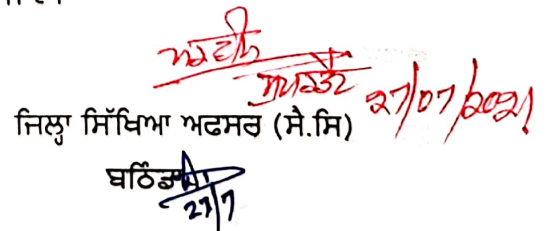 27/07/2021
ਜਿਲ੍ਹਾ ਸਿੱਖਿਆ ਅਫਸਰ (ਸੈ.ਸਿ)
ਬਠਿੰਡਾ
27/7